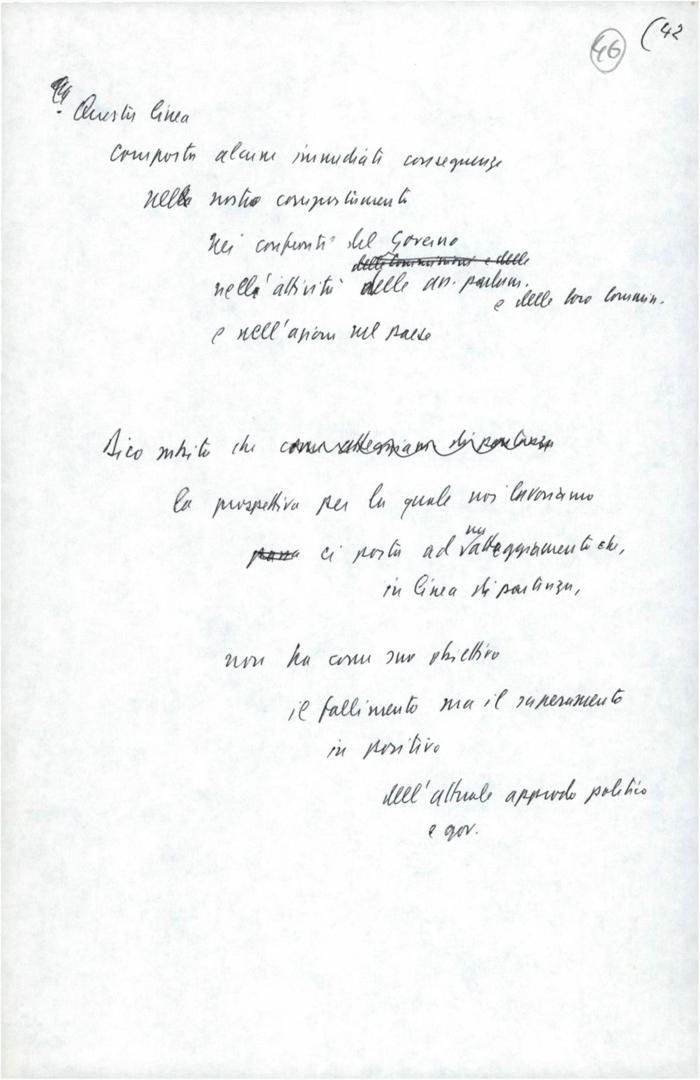 46 (42
Questa linea
comporta alcune immediate conseguenze
nel nostro comportamento
nei confronti del Governo
delle Commissioni e delle
nell'attività delle ass. parlam.
e delle loro Commiss.
e nell'azione nel paese
Dico subito che come atteggiam di partenza
la prospettiva per la quale noi lavoriamo
ci porta ad un atteggiamento che,
in linea di partenza,
non ha come suo obiettivo
il fallimento ma il superamento
in positivo
dell'attuale approdo politico
e gov.